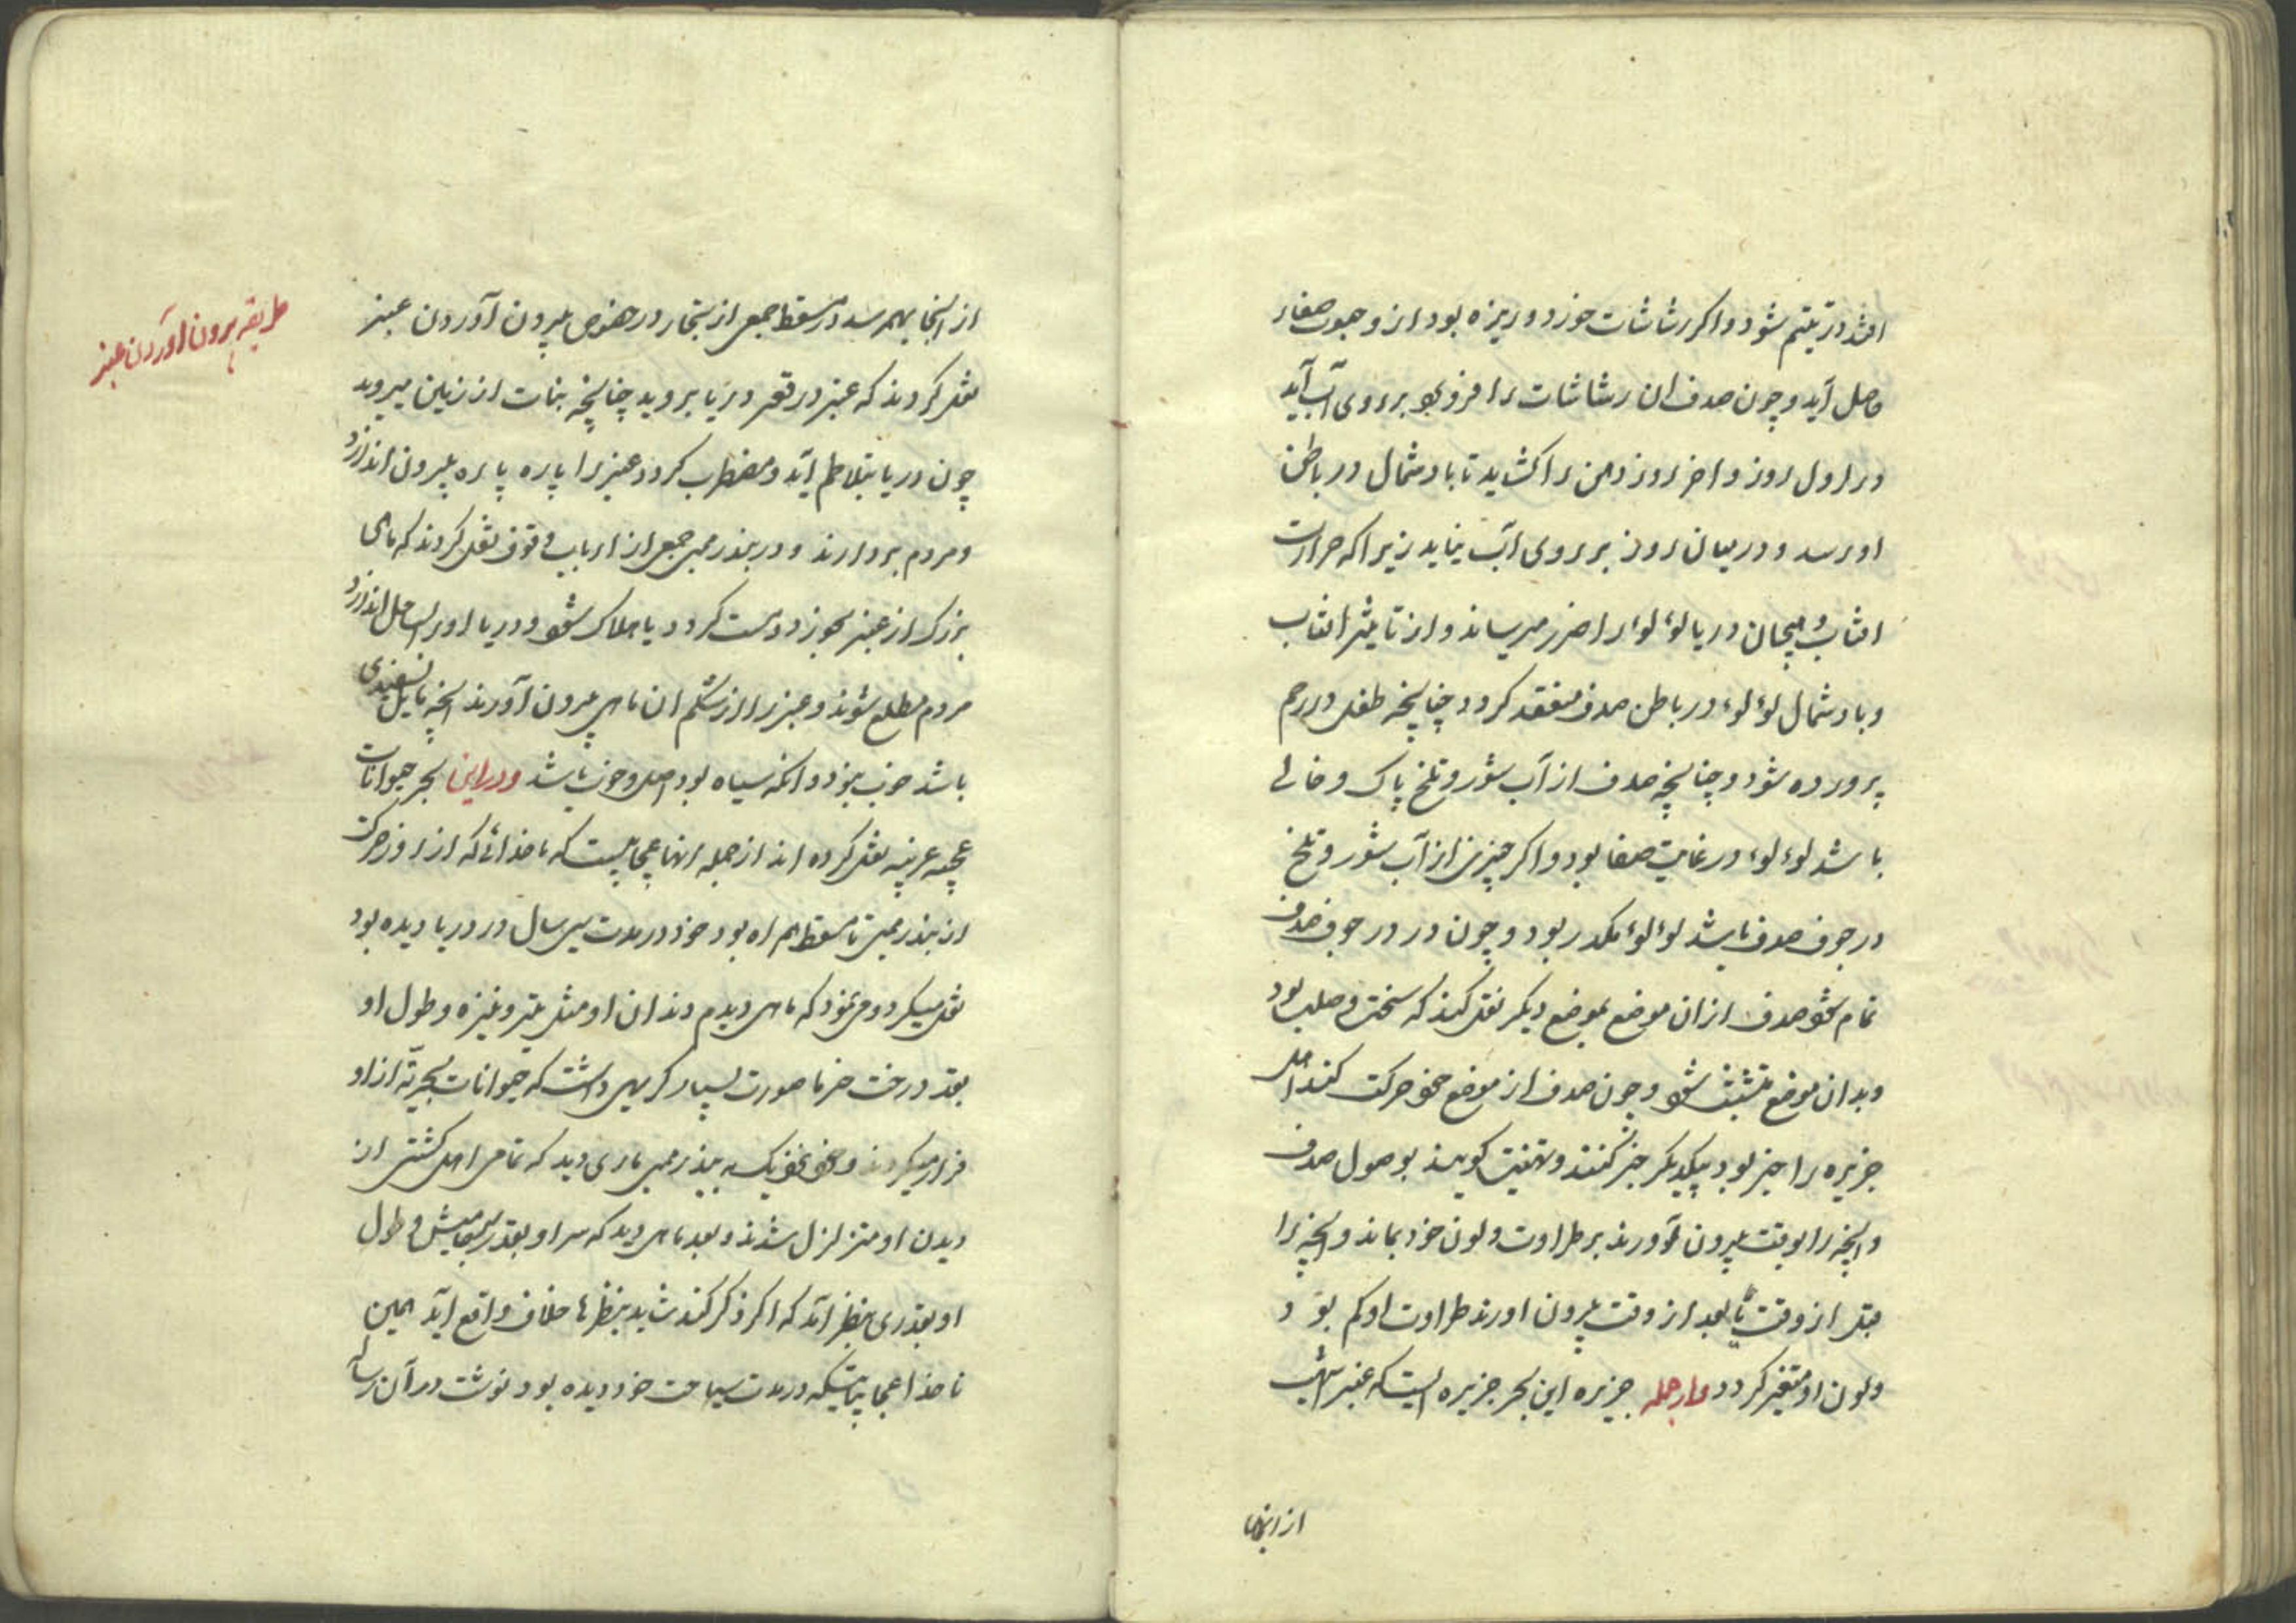 افتد در یتیم شود و اکر رشاشات خورد و ریزه بود از و حبوب صغار
حاصل آید و چون صدف ان رشاشات را فرو برد بر روی آب آید
در اول روز و اخر روز دهن را کشاید تا باد شمال در باطن
او رسد و در میان روز بر روی آب نیاید زیرا که حرارت
افتاب و هیجان دریا لوءلوء را ضرر میرساند و از تاثیر افتاب
و باد شمال لوءلوء در باطن صدف منعقد کردد چنانچه طفل در رحم
پرورده شود و چنانچه صدف از آب شور و تلخ پاک و خالی
باشد لوءلوء در غایت صفا بود و اکر چیزی از آب شور و تلخ
در جوف صدف باشد لوءلوء مکدر بود و چون در در جوف صدف
تمام شود صدف از ان موضع بموضع دیکر نقل کند که سخت و صلب بود
و بدان موضع متشبث شود و چون صدف از موضع خود حرکت کند اهل
جزیره را خبر بود بیکدیکر خبر کنند و تهنیت کویند بوصول صدف
و انچه را بوقت بیرون آورند بر طراوت و لون خود بماند و انچه را
قبل از وقت یا بعد از وقت بیرون اورند طراوت او کم بود و
و لون او متغیر کردد و از جمله جزیره این بحر جزیره ایست که عنبر اشهب
از انجا
از انجا بهم رسد در مسقط جمعی از تجار در خصوص بیرون آوردن عنبر
نقل کردند که عنبر در قعر دریا بروید چنانچه نبات از زمین میروید
چون دریا بتلاطم آید و مضطرب کردد عنبر را پاره پاره بیرون اندازد
و مردم بردارند و در بندر ممبی جمعی از ارباب وقوف نقل کردند که ماهی
بزرک از عنبر بخورد و مست کردد یا هلاک شود و دریا او را بساحل اندازد
مردم مطلع شوند و عنبر را از شکم ان ماهی بیرون آورند انچه مایل بسفیدی
باشد خوب نبود و انکه سیاه بود اصل و خوب باشد و در این بحر حیوانات
عجیبه غریبه نقل کرده اند از جمله انها عجایبیست که ناخدائی که از روز حرکت
از بندر ممبی تا مسقط همراه بود خود در مدت سی سال در دریا دیده بود
نقل میکرد و می نمود که ماهی دیدم دندان او مثل تیر و نیزه و طول او
بقد درخت خرما صورت بسیار کریهی داشت که حیوانات بحریه از او
فرار میکردند و خود نزدیک به بندر ممبی ماری دید که تمامی اهل کشتی از
دیدن او متزلزل شدند و بعد ماهی دید که سر او بقدر سر کامیش و طول
او بقدری بنظر آمد که اکر ذکر کند شاید بنظرها خلاف واقع اید همین
ناخدا عجایباتیکه در مدت سیاحت خود دیده بود نوشت در آن رساله
طریقه بیرون اوردن عنبر